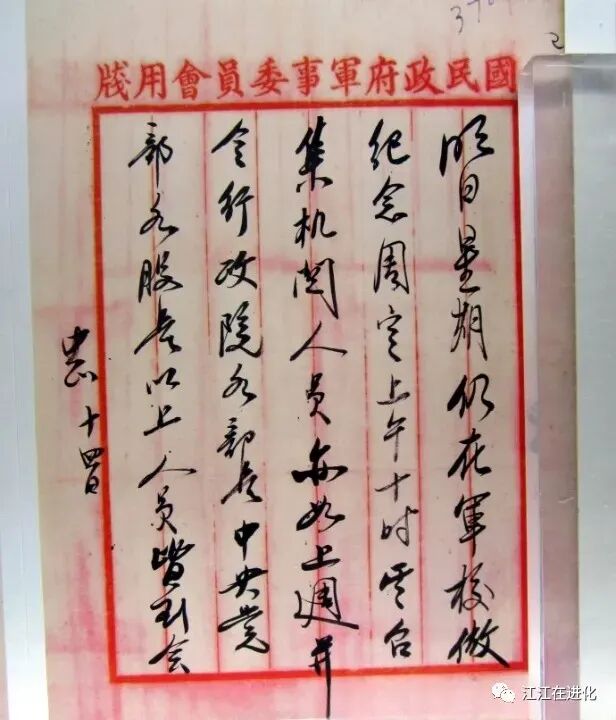 國民政府軍事委員會用牋
明日星期仍在軍校做
纪念周定上午十时应召
集机関人员亦如上週并
令行政院各部长中央党
部各股长以上人员皆到会
中正 十四日
江江在进化